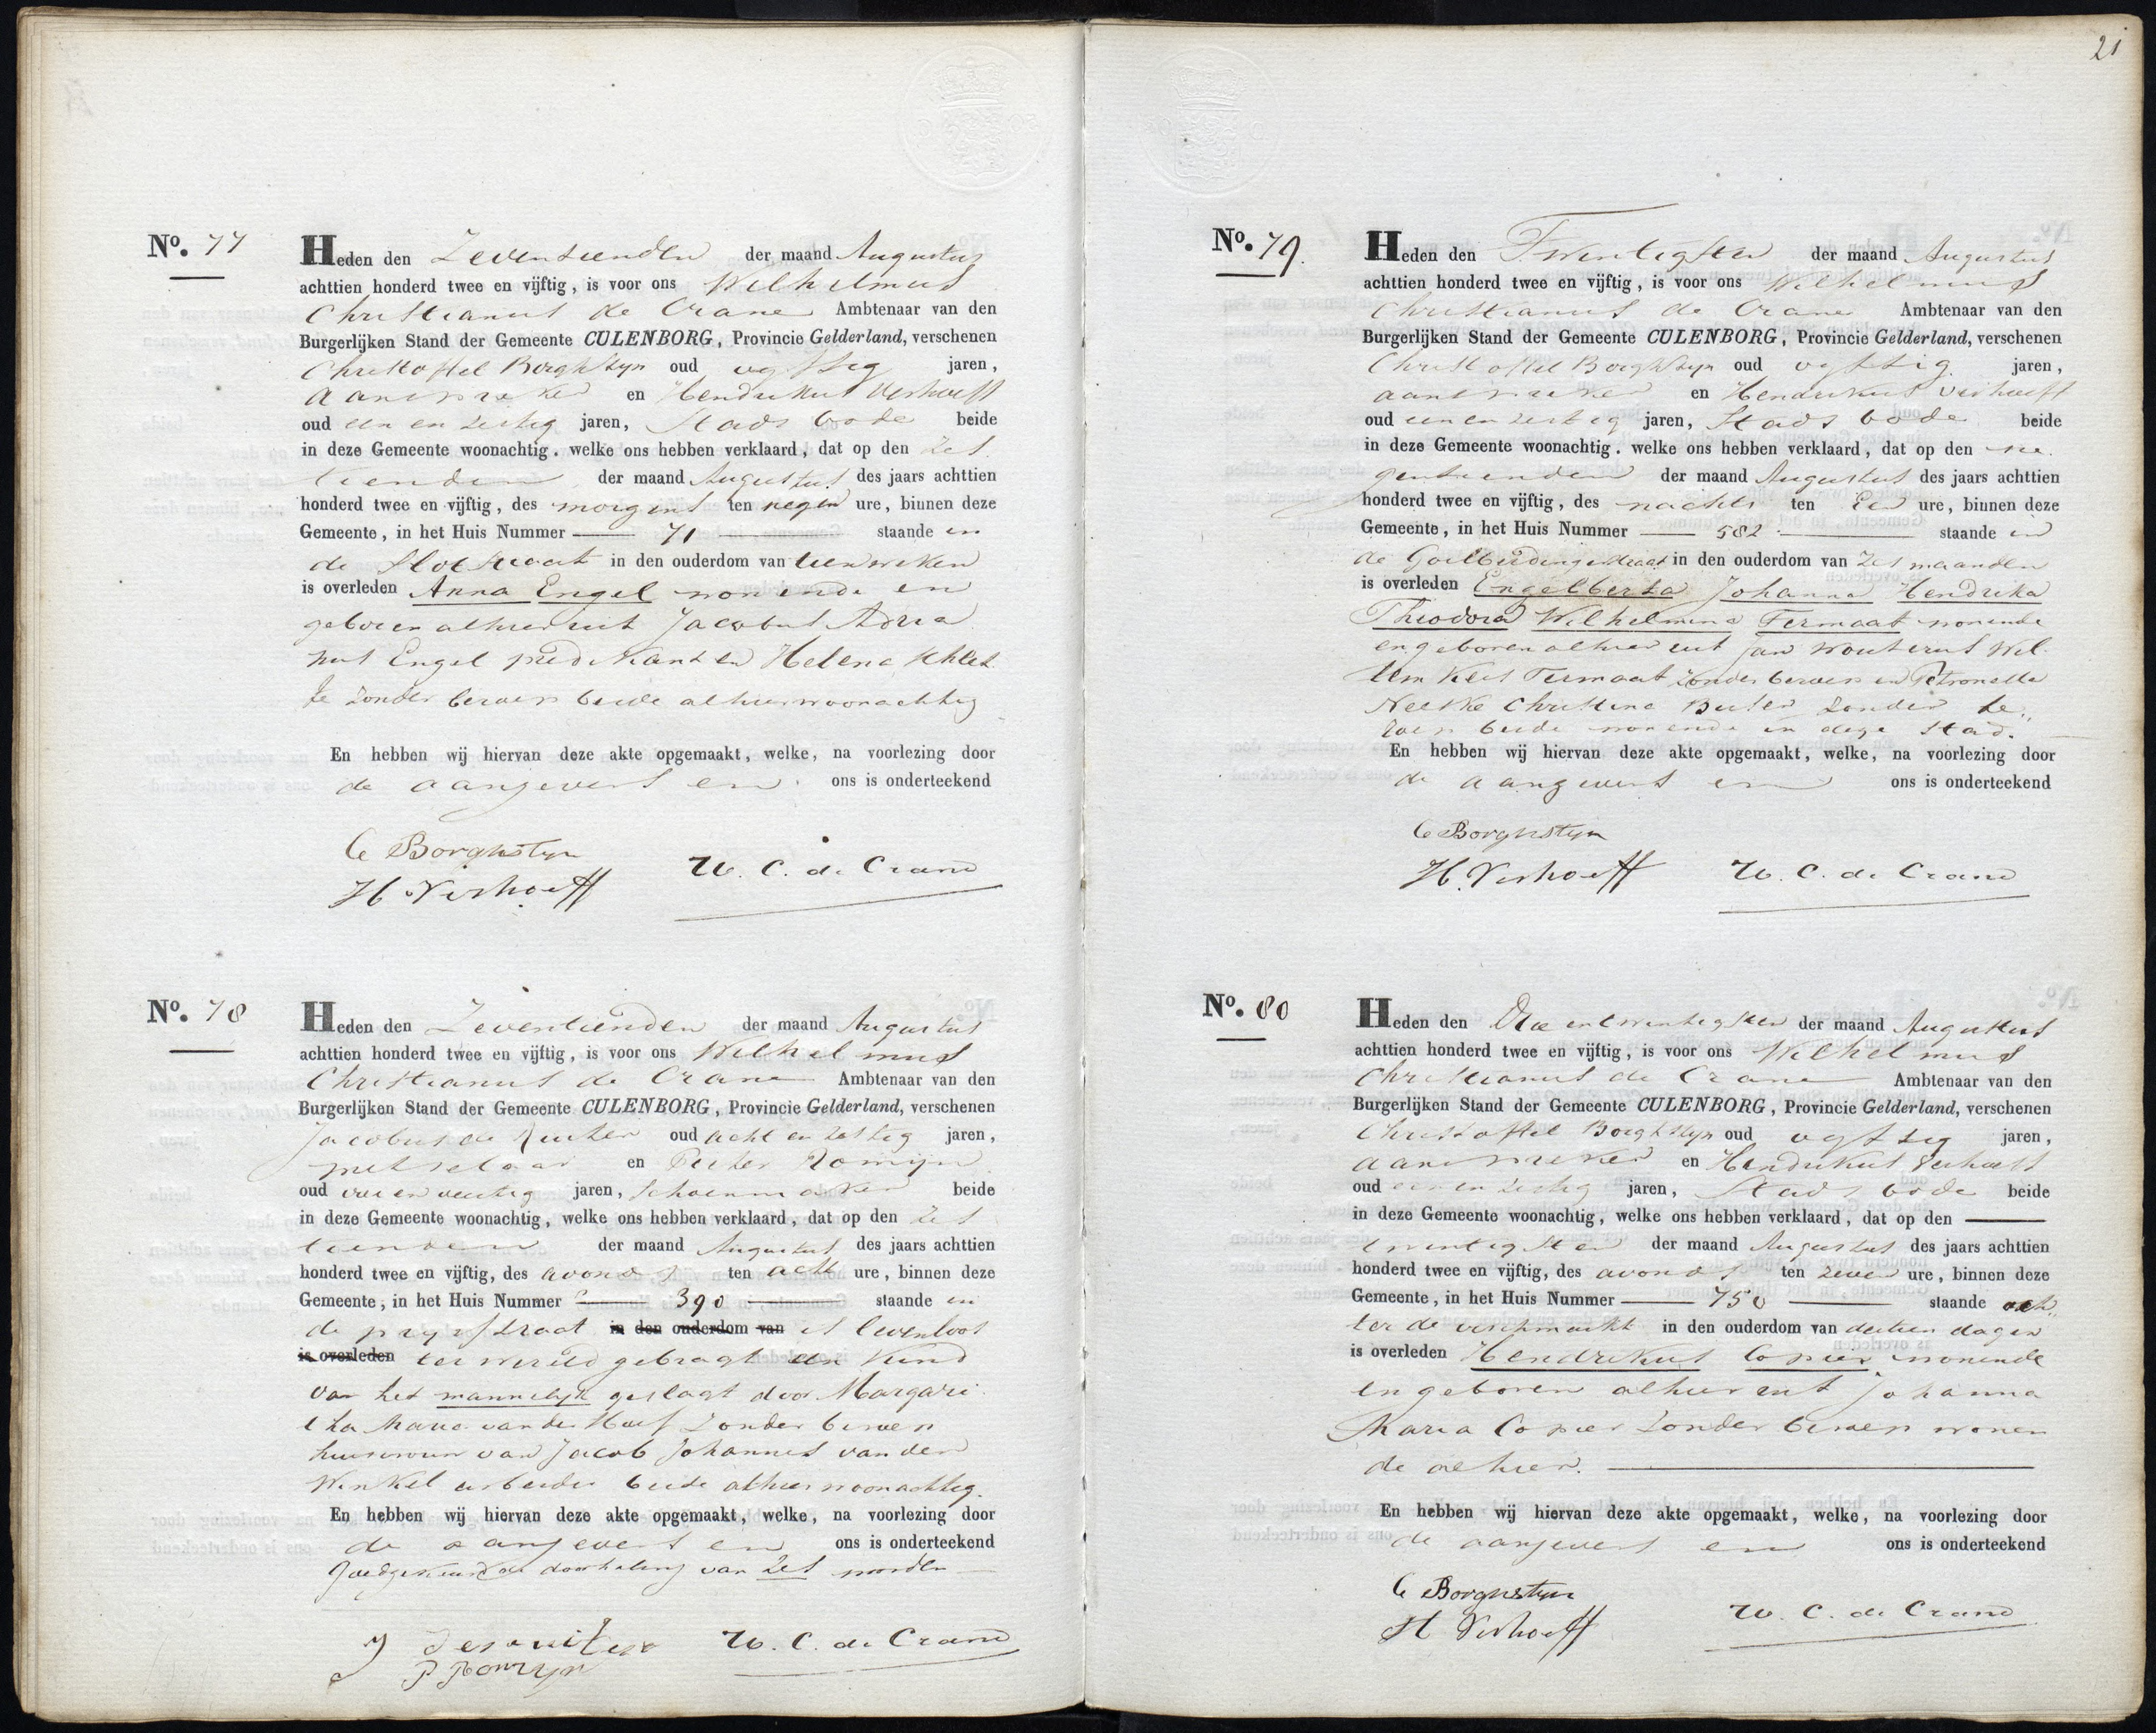 No. 77
Heden den Zeventienden der maand Augustus
achttien honderd twee en vijftig, is voor ons Wilhelmus
Christianus de Crane Ambtenaar van den
Burgerlijken Stand der Gemeente CULENBORG, Provincie Gelderland, verschenen
Christoffel Borghstyn oud vyftig jaren,
aanspreker en Hendrikus Verhoeff
oud een en zestig jaren, Stads bode beide
in deze Gemeente woonachtig, welke ons hebben verklaard, dat op den Zes
tienden der maand Augustus des jaars achttien
honderd twee en vijftig, des morgens ten negen ure, binnen deze
Gemeente, in het Huis Nummer 71 staande in
de Slotstraat in den ouderdom van tien weken
is overleden Anna Engel wonende en
geboren alhier uit Jacobus Adria
nus Engel predikant en Helena
zonder beroep beide alhier woonachtig
En hebben wij hiervan deze akte opgemaakt, welke, na voorlezing door
de aangevers en ons is onderteekend
C Borghstyn
H. Verhoeff W. C. de Crane
No. 78
Heden den Zeventienden der maand Augustus
achttien honderd twee en vijftig, is voor ons Wilhelmus
Christianus de Crane Ambtenaar van den
Burgerlijken Stand der Gemeente CULENBORG, Provincie Gelderland, verschenen
Jacobus de Ruiter oud acht en zestig jaren,
metselaar en Pieter Romijn
oud jaren, Schoenmaker beide
in deze Gemeente woonachtig, welke ons hebben verklaard, dat op den Zes
tienden der maand Augustus des jaars achttien
honderd twee en vijftig, des avonds ten acht ure, binnen deze
Gemeente, in het Huis Nummer 390 staande in
de prijsstraat in den ouderdom van is levenloos
is overleden ter wereld gebragt een Kind
van het mannelijk geslagt door Margari
tha Maria van der Hoef zonder beroep
huisvrouw van Jacob Johannes van den
Winkel arbeider beide alhier woonachtig.
En hebben wij hiervan deze akte opgemaakt, welke, na voorlezing door
de aangevers en ons is onderteekend
Goedgekeurd de doorhaling van zes woorden
J de ruiter W. C. de Crane
P Romijn
21
No. 79.
Heden den Twintigsten der maand Augustus
achttien honderd twee en vijftig, is voor ons Wilhelmus
Christianus de Crane Ambtenaar van den
Burgerlijken Stand der Gemeente CULENBORG, Provincie Gelderland, verschenen
Christoffel Borghstyn oud vyftig jaren,
aanspreker en Hendrikus Verhoeff
oud een en zestig jaren, Stads bode beide
in deze Gemeente woonachtig, welke ons hebben verklaard, dat op den ne
gentienden der maand Augustus des jaars achttien
honderd twee en vijftig, des nachts ten Een ure, binnen deze
Gemeente, in het Huis Nummer 582 staande in
de Goilberdingerstraat in den ouderdom van zes maanden
is overleden Engelberta Johanna Hendrika
Theodora Wilhelmina Termaat wonende
en geboren alhier uit Jan Wouterus Wil
lem Kees Termaat zonder beroep en Petronella
Neeske Christina Buter zonder be„
roep beide wonende in deze Stad.
En hebben wij hiervan deze akte opgemaakt, welke, na voorlezing door
de aangevers en ons is onderteekend
C Borghstyn
H. Verhoeff W. C. de Crane
No. 80
Heden den Drie en twintigsten der maand Augustus
achttien honderd twee en vijftig, is voor ons Wilhelmus
Christianus de Crane Ambtenaar van den
Burgerlijken Stand der Gemeente CULENBORG, Provincie Gelderland, verschenen
Christoffel Borghstyn oud vyftig jaren,
aanspreker en Hendrikus Verhoeff
oud een en zestig jaren, Stads bode beide
in deze Gemeente woonachtig, welke ons hebben verklaard, dat op den
twintigsten der maand Augustus des jaars achttien
honderd twee en vijftig, des avonds ten zeven ure, binnen deze
Gemeente, in het Huis Nummer 750 staande ach„
ter de vischmarkt in den ouderdom van dertien dagen
is overleden Hendrikus Copier wonende
en geboren alhier uit Johanna
Maria Copier zonder beroep wonen
de alhier.
En hebben wij hiervan deze akte opgemaakt, welke, na voorlezing door
de aangevers en ons is onderteekend
C Borghstyn
H Verhoeff W. C. de Crane